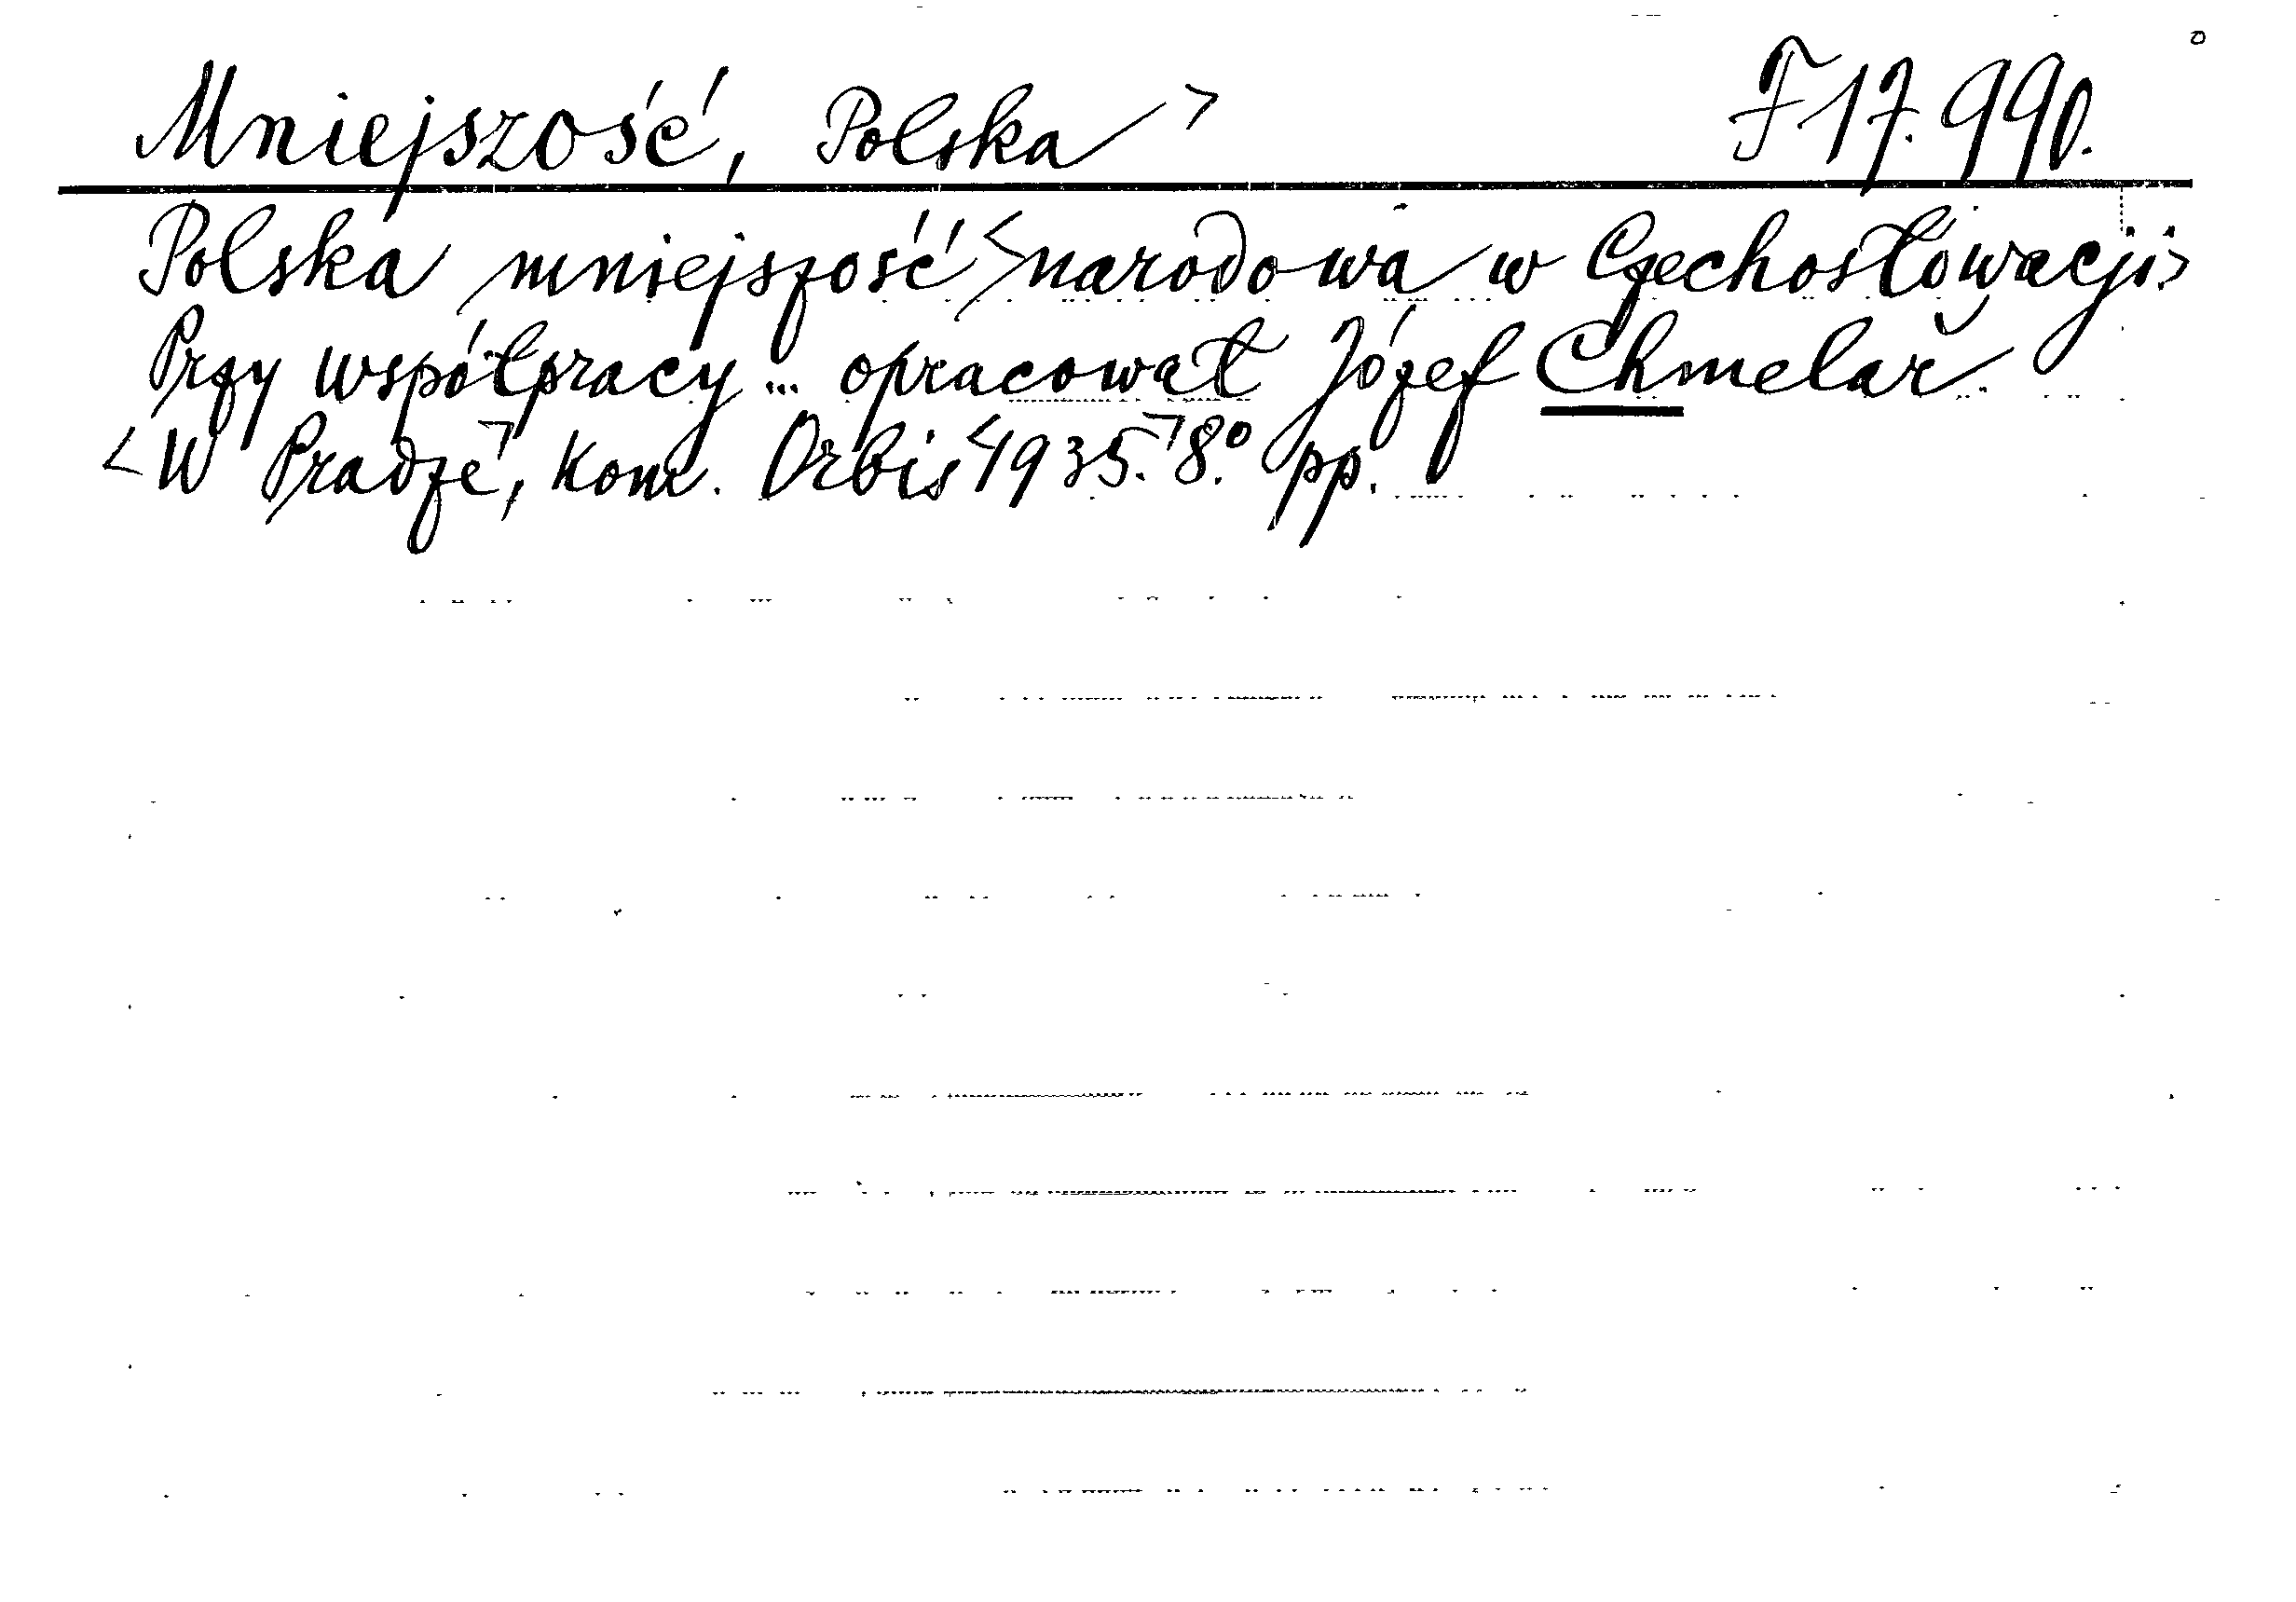 Mniejszość, Polska > F 17.990.
Polska mniejszość < narodowa w Czechosłowacji >
Przy współpracy ... opracował Józef Chmelař.
< W Pradze >, kom. Orbis < 1935. > 8.° pp.